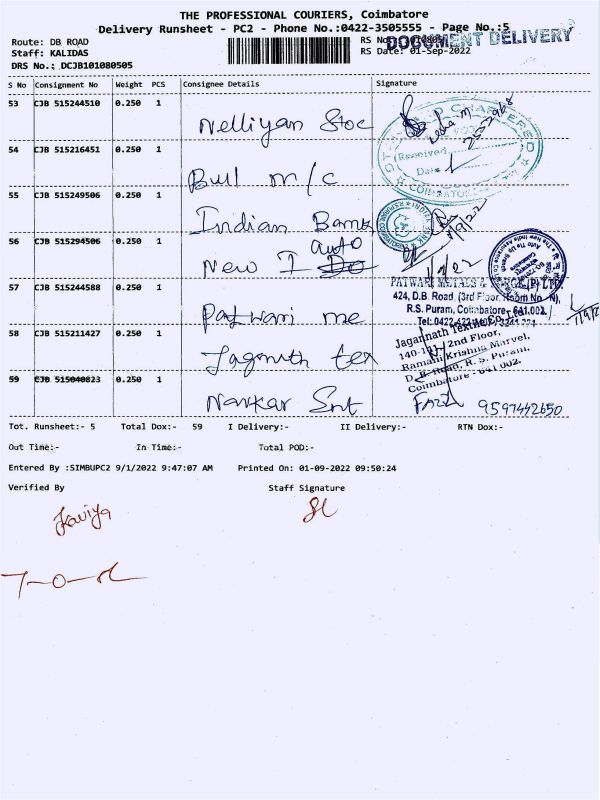 THE PROFESSIONAL COURIERS, Coimbatore
Delivery Runsheet - PC2 - Phone No.:0422-3505555 - Page No.:5
Route: DB ROAD
Staff: KALIDAS
DRS No.: DCJB101080505
RS No.:
RS Date: 01-Sep-2022
DOCUMENT DELIVERY
S No Consignment No Weight PCS Consignee Details Signature
53 CJB 515244510 0.250 1 Nelliyan Stoc
54 CJB 515216451 0.250 1 Bull m/c
55 CJB 515249506 0.250 1 Indian Bank
auto
56 CJB 515294506 0.250 1 New I
57 CJB 515244588 0.250 1 Patwari me
58 CJB 515211427 0.250 1 Jagnath tex
59 CJB 515040823 0.250 1 Navkar Snt
Received
Date
COIMBATORE
1/9/22
PATWARI METALS & (P) LTD.
424, D.B. Road, (3rd Floor, Room No
R.S. Puram, Coimbatore- 641.002.
Tel: 0422
Jagannath Textile Co.
2nd Floor,
Ramani Krishna Marvel,
D.B. Road, R. S. Puram,
Coimbatore - 641 002.
9597442650
Tot. Runsheet:- 5 Total Dox:- 59 I Delivery:- II Delivery:- RTN Dox:-
Out Time:- In Time:- Total POD:-
Entered By :SIMBUPC2 9/1/2022 9:47:07 AM Printed On: 01-09-2022 09:50:24
Verified By Staff Signature
Kaviya